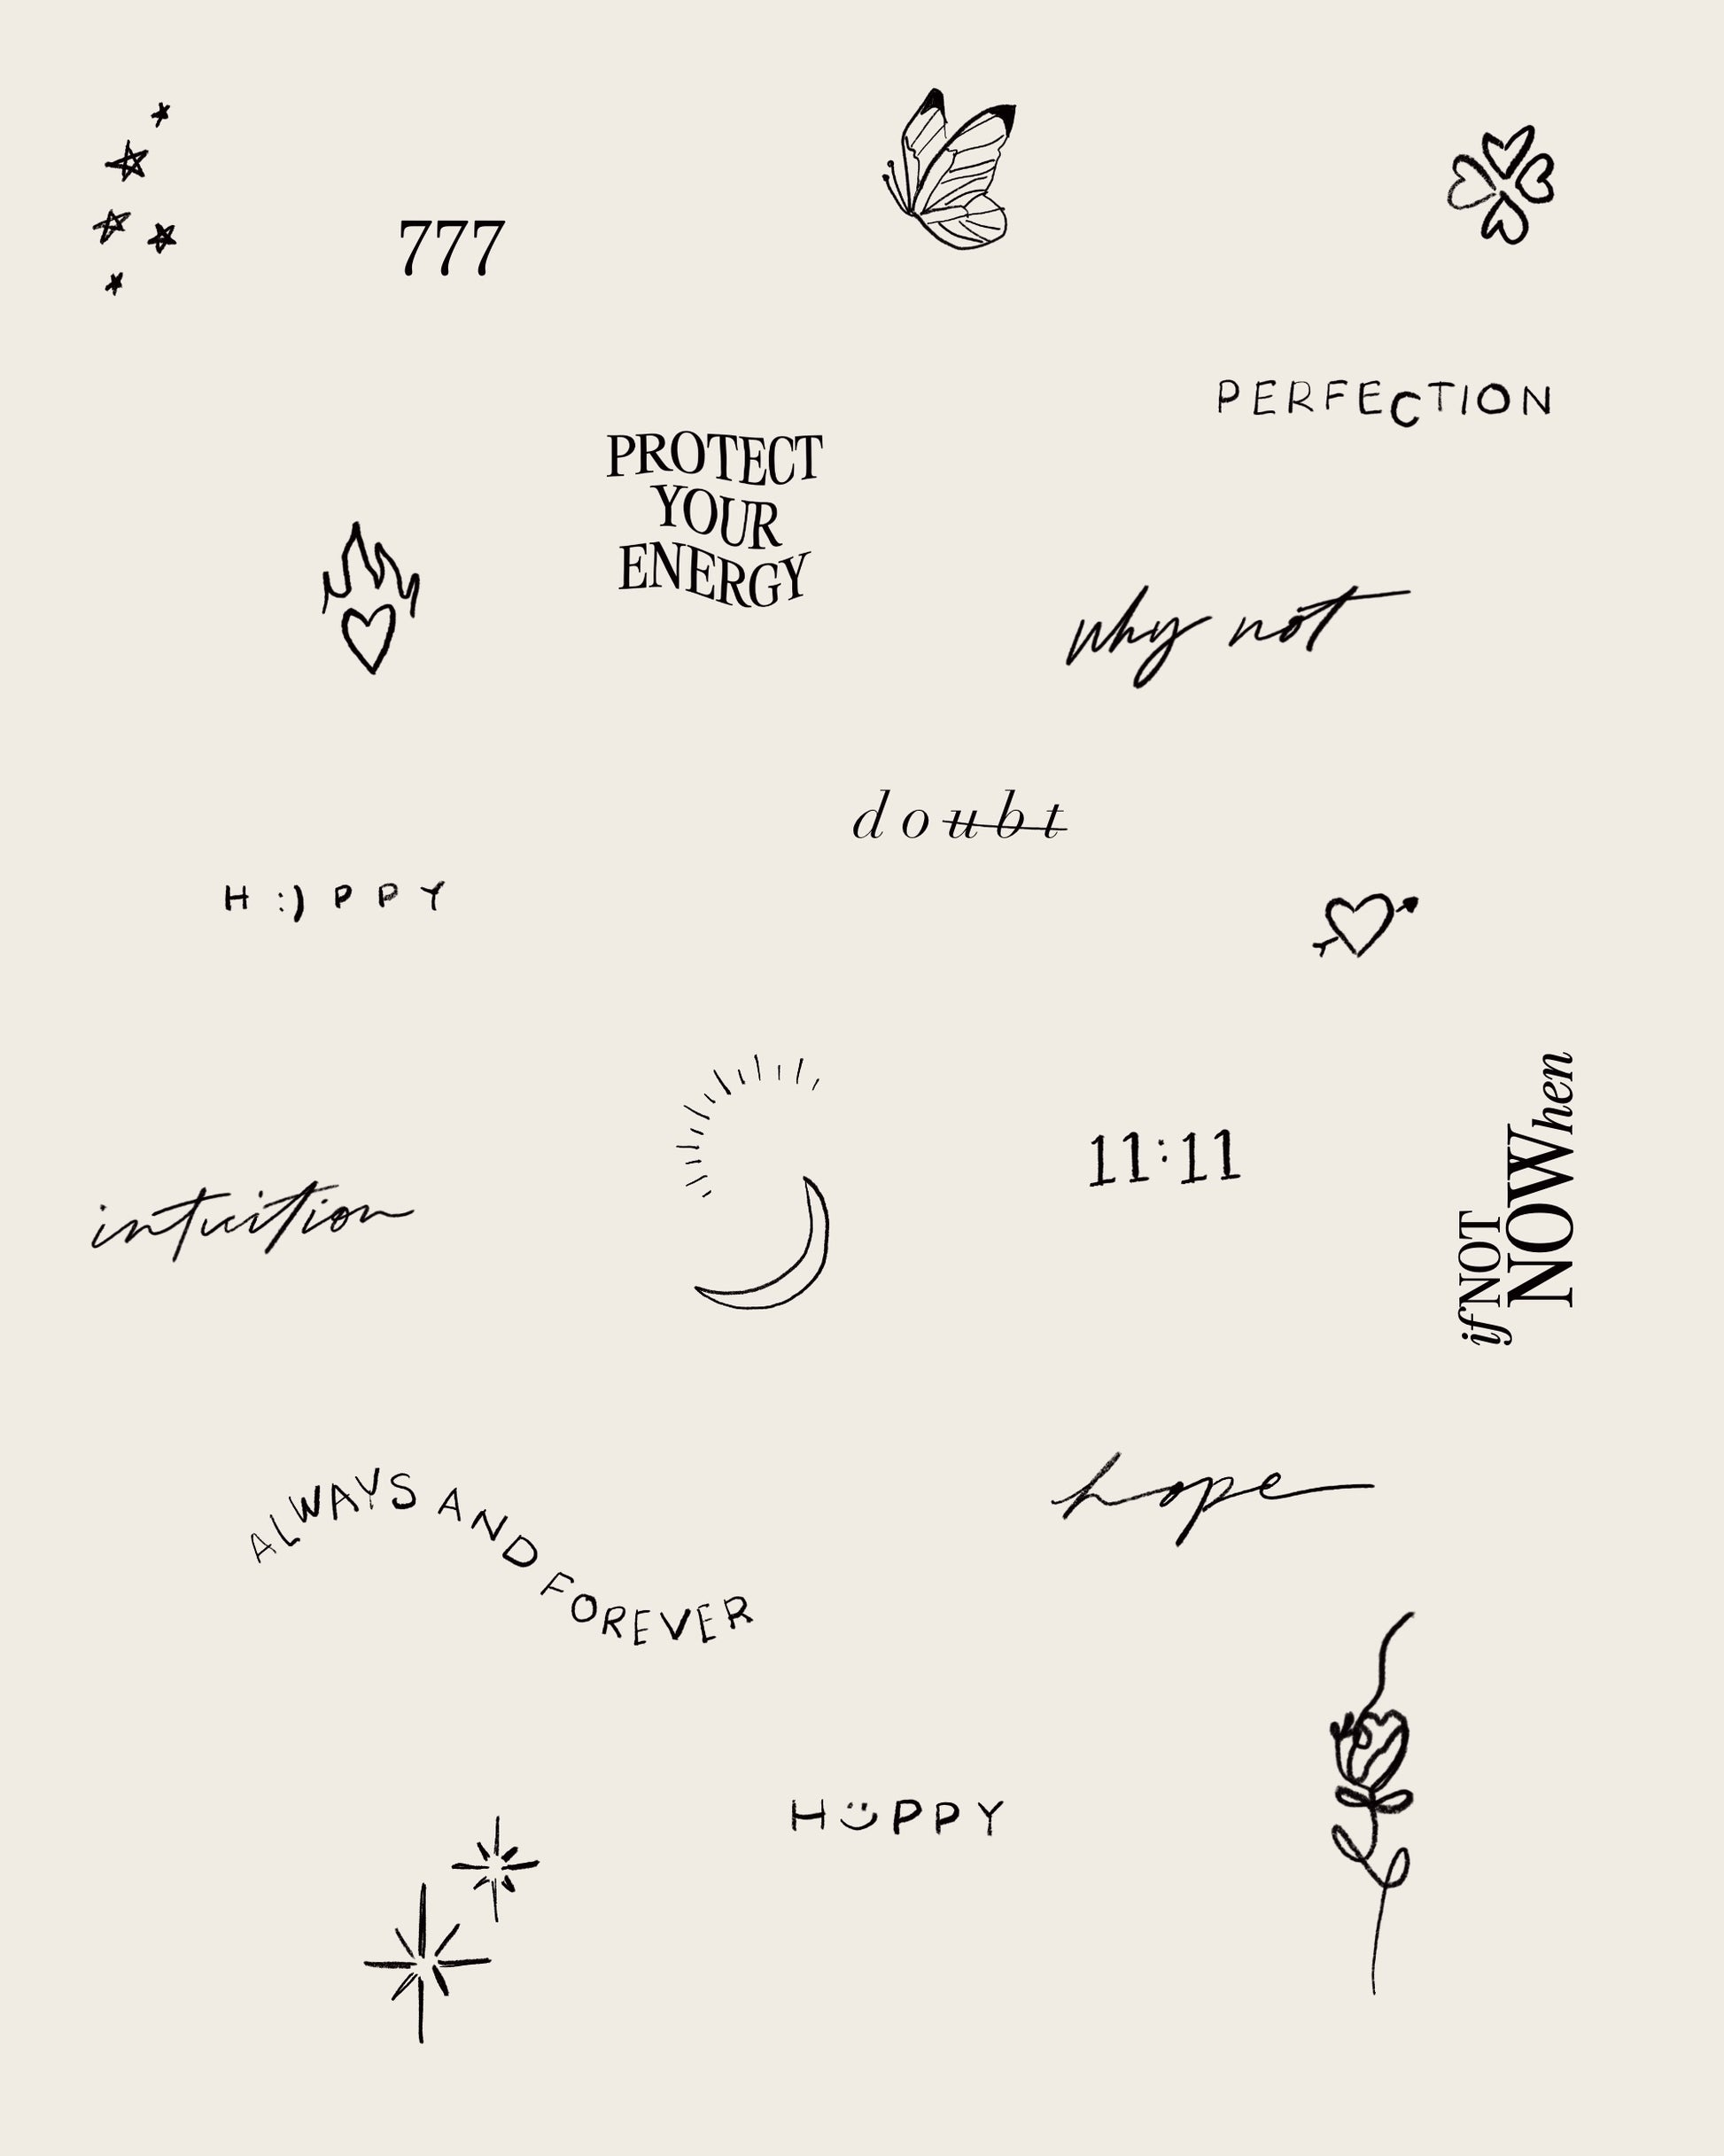 777
PERFECTION
PROTECT
YOUR
ENERGY
why not
doubt
H :) P P Y
11:11
if NOT
NOWhen
intuition
ALWAYS AND FOREVER
hope
H ü P P Y